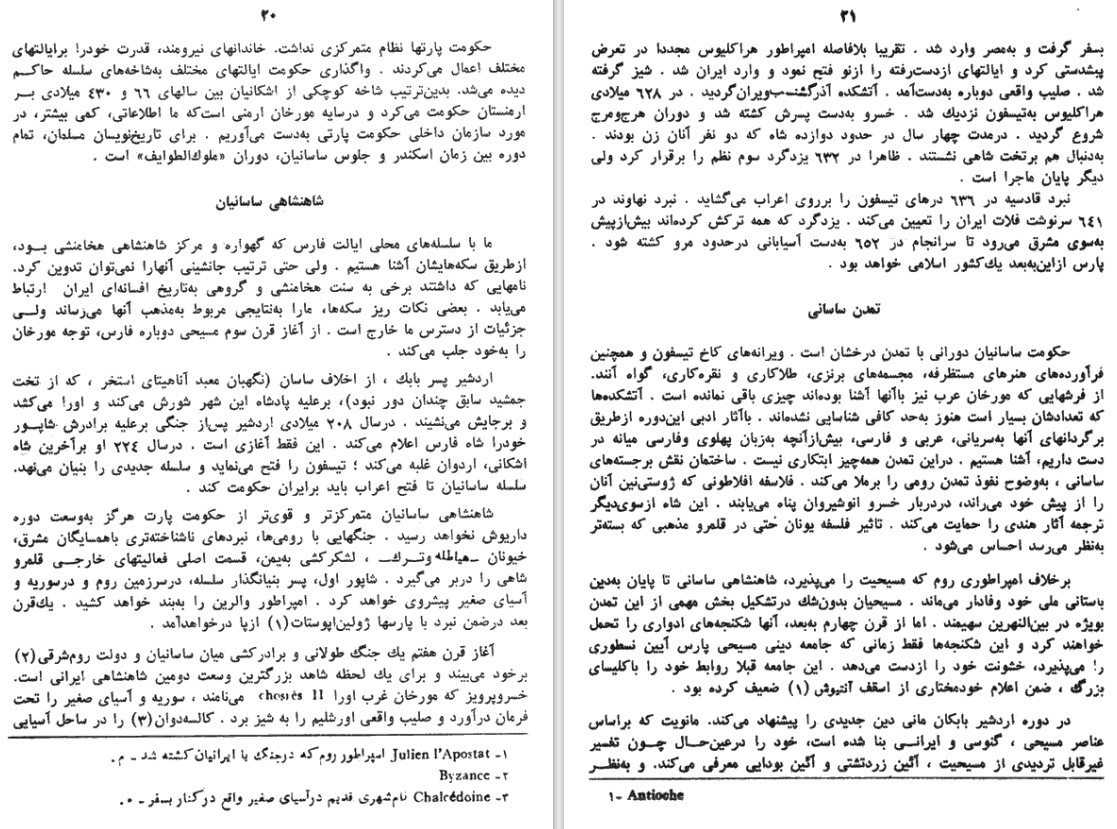 ۲۰
حکومت پارتها نظام متمرکزی نداشت. خاندانهای نیرومند، قدرت خودرا برایالتهای
مختلف اعمال می‌کردند . واگذاری حکومت ایالتهای مختلف به‌شاخه‌های سلسله حاکم
دیده می‌شد. بدین‌ترتیب شاخه کوچکی از اشکانیان بین سالهای ۶۶ و ۴۳۰ میلادی بر
ارمنستان حکومت می‌کرد و درسایه مورخان ارمنی است‌که ما اطلاعاتی، کمی بیشتر، در
مورد سازمان داخلی حکومت پارتی به‌دست می‌آوریم . برای تاریخ‌نویسان مسلمان، تمام
دوره بین زمان اسکندر و جلوس ساسانیان، دوران «ملوك‌الطوایف» است .
شاهنشاهی ساسانیان
ما با سلسله‌های محلی ایالت فارس که گهواره و مرکز شاهنشاهی هخامنشی بود،
ازطریق سکه‌هایشان آشنا هستیم . ولی حتی ترتیب جانشینی آنهارا نمی‌توان تدوین کرد.
نامهایی که داشتند برخی به سنت هخامنشی و گروهی به‌تاریخ افسانه‌ای ایران ارتباط
می‌یابد . بعضی نکات ریز سکه‌ها، مارا به‌نتایجی مربوط به‌مذهب آنها می‌رساند ولی
جزئیات از دسترس ما خارج است . از آغاز قرن سوم مسیحی دوباره فارس، توجه مورخان
را به‌خود جلب می‌کند .
اردشیر پسر بابك ، از اخلاف ساسان (نگهبان معبد آناهیتای استخر ، که از تخت
جمشید سابق چندان دور نبود)، برعلیه پادشاه این شهر شورش می‌کند و اورا می‌کشد
و برجایش می‌نشیند . درسال ۲۰۸ میلادی اردشیر پس‌از جنگی برعلیه برادرش شاپور
خودرا شاه فارس اعلام می‌کند . این فقط آغازی است . درسال ۲۲۴ او برآخرین شاه
اشکانی، اردوان غلبه می‌کند ؛ تیسفون را فتح می‌نماید و سلسله جدیدی را بنیان می‌نهد.
سلسله ساسانیان تا فتح اعراب باید برایران حکومت کند .
شاهنشاهی ساسانیان متمرکزتر و قوی‌تر از حکومت پارت هرگز به‌وسعت دوره
داریوش نخواهد رسید . جنگهایی با رومی‌ها، نبردهای ناشناخته‌تری باهمسایگان مشرق،
خیونان -هیاطله وترك- ، لشکرکشی به‌یمن، قسمت اصلی فعالیتهای خارجی قلمرو
شاهی را دربر می‌گیرد . شاپور اول، پسر بنیانگذار سلسله، درسرزمین روم و درسوریه و
آسیای صغیر پیشروی خواهد کرد . امپراطور والرین را به‌بند خواهد کشید . یك‌قرن
بعد درضمن نبرد با پارسها ژولین‌اپوستات(۱) ازپا درخواهدآمد .
آغاز قرن هفتم یك جنگ طولانی و برادرکشی میان ساسانیان و دولت روم‌شرقی(۲)
برخود می‌بیند و برای یك لحظه شاهد بزرگترین وسعت دومین شاهنشاهی ایرانی است.
خسروپرویز که مورخان غرب اورا II می‌نامند ، سوریه و آسیای صغیر را تحت
فرمان درآورد و صلیب واقعی اورشلیم را به شیز برد . کالسه‌دوان(۳) را در ساحل آسیایی
۱- Julien l'Apostat امپراطور روم که درجنگ با ایرانیان کشته شد - م .
۲- Byzance
۳- Chalcédoine نام‌شهری قدیم درآسیای صغیر واقع درکنار بسفر - م.
۲۱
بسفر گرفت و به‌مصر وارد شد . تقریبا بلافاصله امپراطور هراکلیوس مجددا در تعرض
پیشدستی کرد و ایالتهای ازدست‌رفته را ازنو فتح نمود و وارد ایران شد . شیز گرفته
شد . صلیب واقعی دوباره به‌دست‌آمد . آتشکده آذرگشنسب‌ویران‌گردید . در ۶۲۸ میلادی
هراکلیوس به‌تیسفون نزدیك شد . خسرو به‌دست پسرش کشته شد و دوران هرج‌ومرج
شروع گردید . درمدت چهار سال در حدود دوازده شاه که دو نفر آنان زن بودند .
به‌دنبال هم برتخت شاهی نشستند . ظاهرا در ۶۳۲ یزدگرد سوم نظم را برقرار کرد ولی
دیگر پایان ماجرا است .
نبرد قادسیه در ۶۳۶ درهای تیسفون را برروی اعراب می‌گشاید . نبرد نهاوند در
۶۴۱ سرنوشت فلات ایران را تعیین می‌کند . یزدگرد که همه ترکش کرده‌اند بیش‌ازپیش
به‌سوی مشرق می‌رود تا سرانجام در ۶۵۲ به‌دست آسیابانی درحدود مرو کشته شود .
پارس ازاین‌به‌بعد یك‌کشور اسلامی خواهد بود .
تمدن ساسانی
حکومت ساسانیان دورانی با تمدن درخشان است . ویرانه‌های کاخ تیسفون و همچنین
فرآورده‌های هنرهای مستظرفه، مجسمه‌های برنزی، طلاکاری و نقره‌کاری، گواه آنند.
از فرشهایی که مورخان عرب نیز باآنها آشنا بوده‌اند چیزی باقی نمانده است . آتشکده‌ها
که تعدادشان بسیار است هنوز به‌حد کافی شناسایی نشده‌اند . باآثار ادبی این‌دوره ازطریق
برگردانهای آنها به‌سریانی، عربی و فارسی، بیش‌ازآنچه به‌زبان پهلوی وفارسی میانه در
دست داریم، آشنا هستیم . دراین تمدن همه‌چیز ابتکاری نیست . ساختمان نقش برجسته‌های
ساسانی ، به‌وضوح نفوذ تمدن رومی را برملا می‌کند . فلاسفه افلاطونی که ژوستی‌نین آنان
را از پیش خود می‌راند، دردربار خسرو انوشیروان پناه می‌یابند . این شاه ازسوی‌دیگر
ترجمه آثار هندی را حمایت می‌کند . تاثیر فلسفه یونان حتی در قلمرو مذهبی که بسته‌تر
به‌نظر می‌رسد احساس می‌شود .
برخلاف امپراطوری روم که مسیحیت را می‌پذیرد، شاهنشاهی ساسانی تا پایان به‌دین
باستانی ملی خود وفادار می‌ماند . مسیحیان بدون‌شك درتشکیل بخش مهمی از این تمدن
بویژه در بین‌النهرین سهیمند . اما از قرن چهارم به‌بعد، آنها شکنجه‌های ادواری را تحمل
خواهند کرد و این شکنجه‌ها فقط زمانی که جامعه دینی مسیحی پارس آیین نسطوری
را می‌پذیرد، خشونت خود را ازدست می‌دهد . این جامعه قبلا روابط خود را باکلیسای
بزرگ ، ضمن اعلام خودمختاری از اسقف آنتیوش (۱) ضعیف کرده بود .
در دوره اردشیر بابکان مانی دین جدیدی را پیشنهاد می‌کند. مانویت که براساس
عناصر مسیحی ، گنوسی و ایرانی بنا شده است، خود را درعین‌حال چون تفسیر
غیرقابل تردیدی از مسیحیت ، آئین زردتشتی و آئین بودایی معرفی می‌کند. و به‌نظر
۱- Antioche